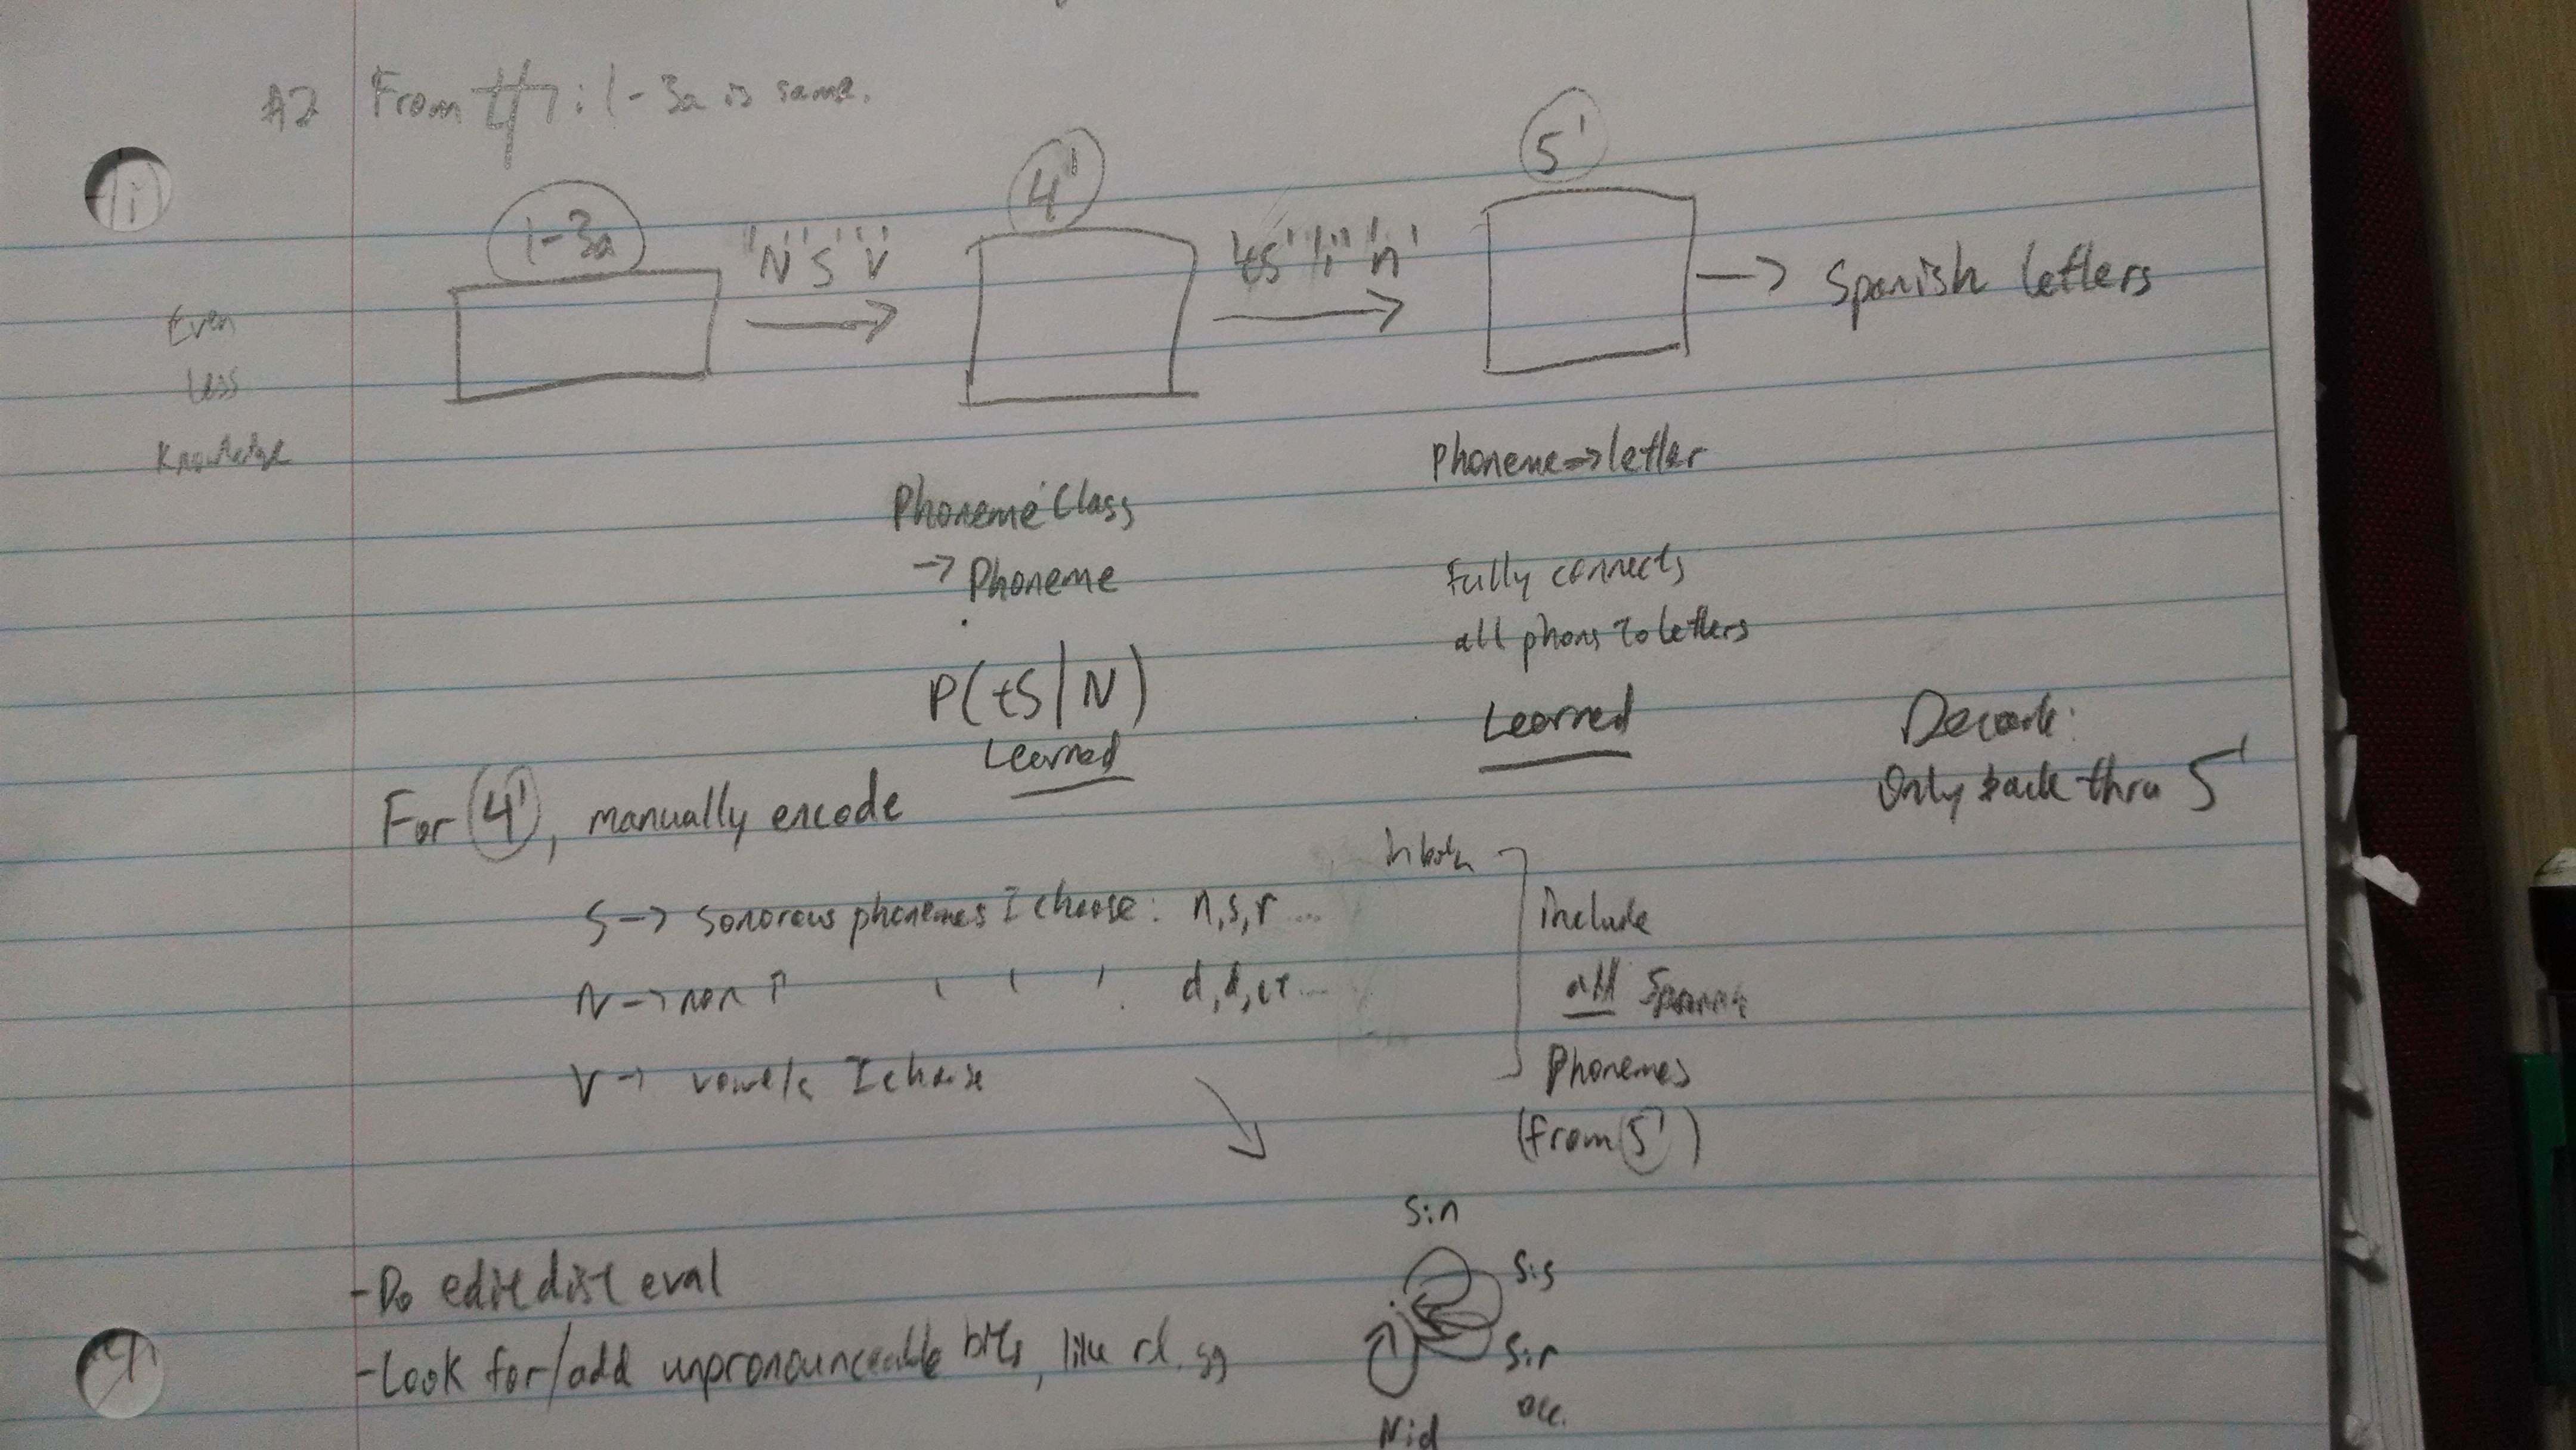 #2 From #7: 1-3a is same.
1-3a
4'
5'
'N' 'S' 'V'
'tS' 'i' 'n'
→ Spanish letters
Even
Less
Knowledge
Phoneme Class
→ Phoneme
P(tS|N)
Learned
Phoneme → letter
Fully connects
all phons to letters
Learned
Decode:
Only back thru 5'
For 4', manually encode
S → Sonorous phonemes I choose: n, s, r ...
N → non
V → vowels I choose
In both
include
all Spanish
Phonemes
(from 5')
- Do edit dist eval
- Look for/add unpronounceable bits, like rl, sg
S:n
S:s
S:r
N:d